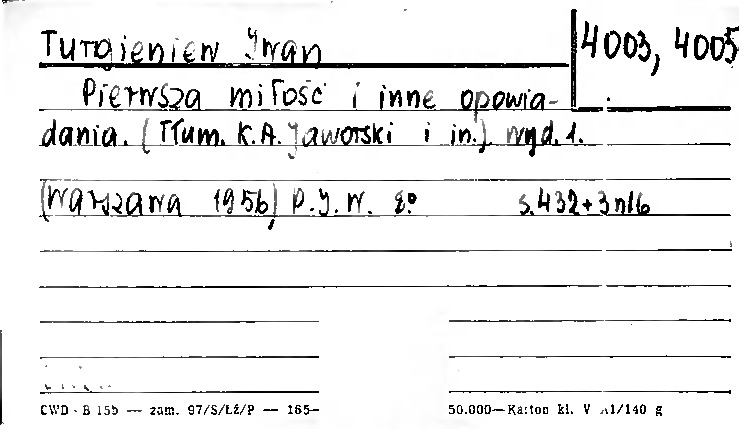 Turgieniew Iwan
4003, 4005
Pierwsza miłość i inne opowia-
dania. (Tłum. K.A. Jaworski i in.) wyd. 1.
(Warszawa 1956) P.I.W. 8°  s. 432+3 nlb
CWD - B 155 — zam. 97/S/Łź/P — 165— 50.000—Karton kl. V A1/140 g